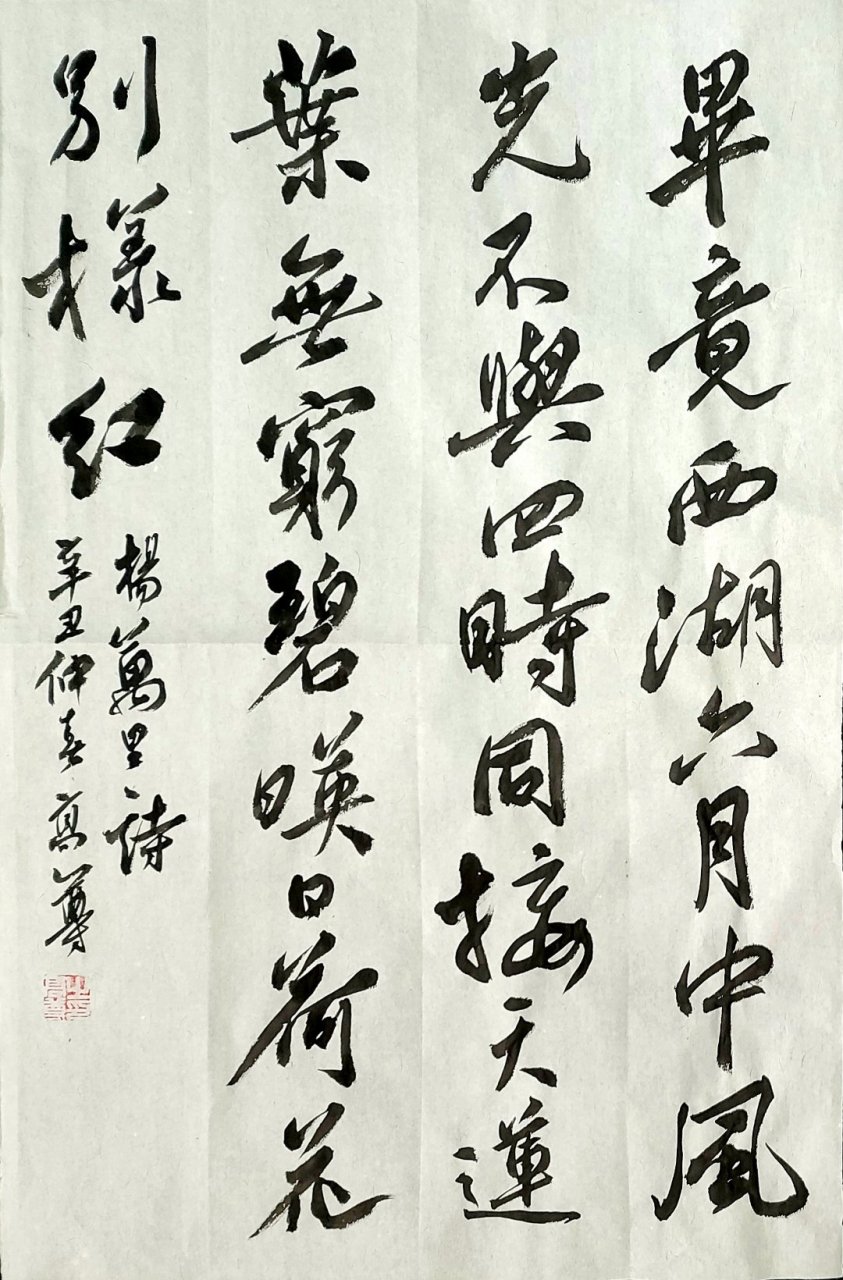 畢竟西湖六月中風
光不與四時同接天蓮
葉無窮碧暎日荷花
別樣紅
楊萬里詩
辛丑仲春高尊